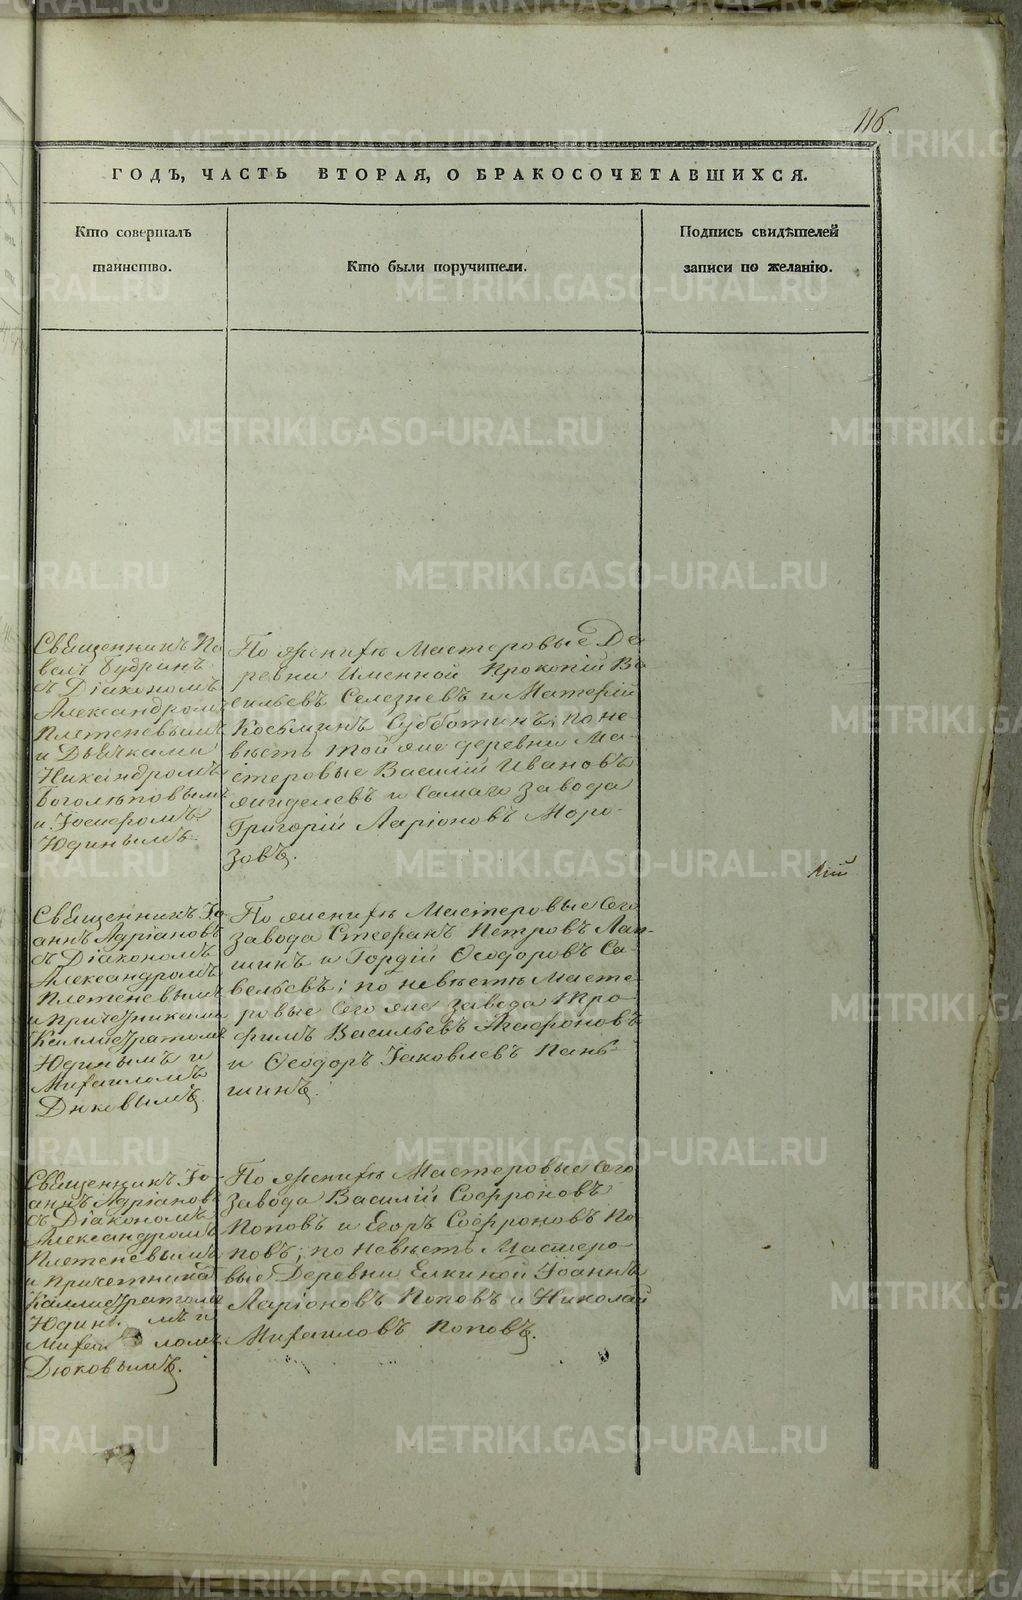 116.
ГОДЪ, ЧАСТЬ ВТОРАЯ, О БРАКОСОЧЕТАВШИХСЯ.
Кто совершалъ
таинство.
Кто были поручители.
Подпись свидѣтелей
записи по желанію.
Священникъ Па
велъ Будринъ
съ Діакономъ
Александромъ
Плетеневымъ
и Дьячками
Никандромъ
Боголюповымъ
и Іосифомъ
Юдинымъ.
По женихѣ Мастеровые Де
ревни Именной Прокопій Ва
сильевъ Селезневъ и Матѳей
Косьминъ Субботинъ; по не-
вѣстѣ той же деревни Ма-
стеровые Василій Ивановъ
и Самаго завода
Григорій Ларіоновъ Моро-
зовъ.
Священникъ Іо
аннъ Адріановъ
съ Діакономъ
Александромъ
Плетеневымъ
и Причетниками
Каллистратомъ
Юдинымъ и
Михаиломъ
Дюковымъ.
По женихѣ Мастеровые Сего
завода Стефанъ Петровъ Лап-
шинъ и Гордій Ѳеодоровъ Са-
вельевъ; по невѣстѣ Масте-
ровые Сего же завода Тро-
фимъ Васильевъ Агафоновъ
и Ѳеодоръ Іаковлевъ Пань-
шинъ.
Священникъ Іо-
аннъ Адріановъ
съ Діакономъ
Александромъ
Плетеневымъ
и причетника
Каллистратомъ
Юдинымъ и
Михаиломъ
Дюковымъ.
По женихѣ Мастеровые Сего
завода Василій Софроновъ
Поповъ и Егоръ Софроновъ По
повъ; по невѣстѣ Мастеро-
вые Деревни Елкиной Іоаннъ
Ларіоновъ Поповъ и Николай
Михаиловъ Поповъ.
METRIKI.GASO-URAL.RU